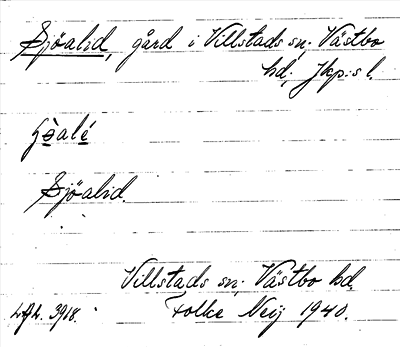 Sjöalid, gård i Villstads sn; Västbo
hd; Jkp:s l.
Sjöalid.
Villstads sn; Västbo hd.
3918. Folke Neij 1940.